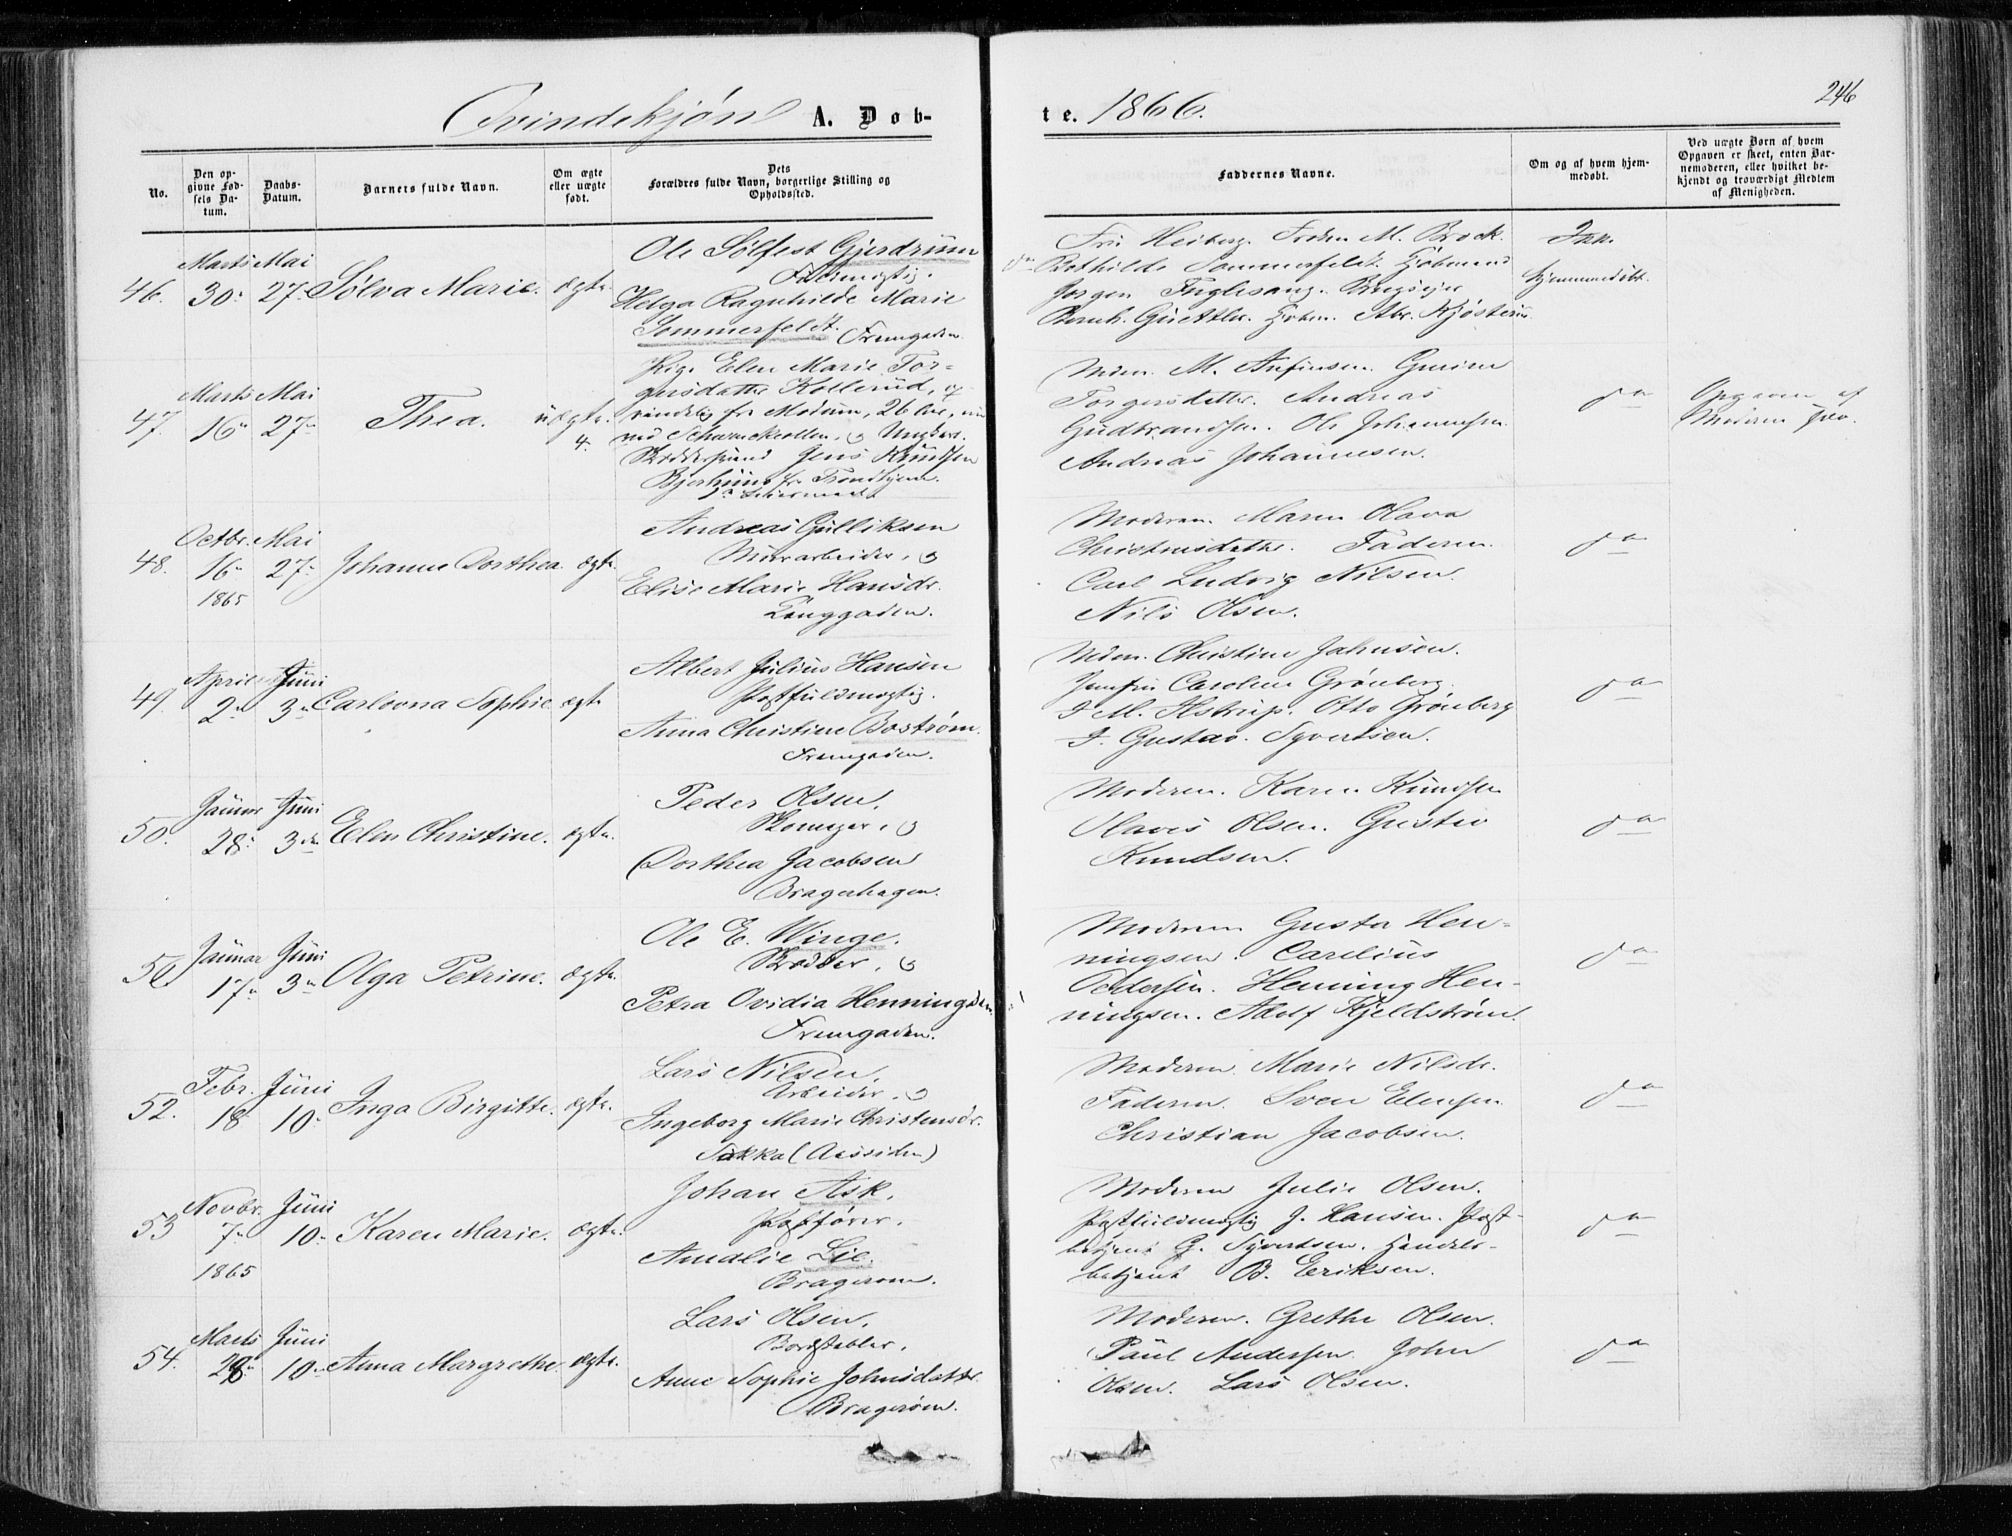 246
Qvindekjøn A. Døb-
te. 1866.
No.
Den op-
givne Fød-
sels Da-
tum.
Daabs-
Datum.
Barnets fulde Navn.
Om ægte
eller uægte
født.
Dets
Forældres fulde Navn, borgerlige Stilling og
Opholdssted.
Faddernes Navne.
Om og af hvem hjem-
medøbt.
Ved uægte Børn af hvem
Opgaven er skeet, enten Bar-
nemoderen, eller hvilket be-
kjendt og troværdigt Medlem
af Menigheden.
46. Marts 30. Mai 27. Sølva Marie. ægte.
Ole Sølfest Gjerdrum
Fuldmægtig.
Helga Ragnhilde Marie
Sommerfeldt. Fremgaden
Fru Heiberg. Frøken M. Brock.
Bothilde Sommerfeldt. Kjøbmand
Jørgen Englesang.
Ikke
hjemmedøbt.
47. Marts 16 Mai 27 Thea. uægte. 4.
Pige Elen Marie Tor-
gersdatter Kollerud, op-
rindelig fra Modum, 26 Aar, nu
ved
Jens Knudsen
fra Trondhjem.
Mdm. M. Anfinsen. Gurine
Torgersdatter. Andreas
Gudbrandsen. Ole Johannesen
Andreas Johannesen.
do
Opgaven af
Moderen selv.
48. Octbr. 16 1865 Mai 27 Johanne Dorthea. ægte.
Andreas Gulliksen
Murarbeider, og
Elise Marie Hansdr.
Langgaden.
Moderen. Maren Olava
Christensdatter. Faderen.
Carl Ludvig Nilsen.
Nils Olsen.
do
49. April 2 Juni 3 Carlovna Sophie ægte
Albert Julius Hansen
Postfuldmægtig.
Anna Christine Bostrøm.
Fremgaden.
Mdm. Christine Jahnsen.
Jomfru Caroline Grønberg.
I. M. Astrup. Otto Grønberg
I. Gustav. Syvertsen.
do
50. Januar 28. Juni 3die Elen Christine. ægte.
Peder Olsen.
Skomager, og
Dorthea Jacobsen
Bragerhagen.
Moderen. Karen Knudsen
Olsen. Gustav
Knudsen.
do
51. Januar 17 Juni 3 Olga Petrine. ægte.
Ole E. Winge.
Skrædder, og
Petra Ovidia Henningsen
Fremgaden.
Moderen Gusta Hen-
ningsen. Carelius
Pedersen. Henning Hen-
ningsen. Adolf Kjeldstrøm.
do
52. Febr. 18 Juni 10. Inga Birgitte. ægte.
Lars Nilsen.
Arbeider, og
Ingeborg Marie Christensdr.
Sakka (Aassiden)
Moderen. Marie Nilsdr.
Faderen. Sven Elensen
Christian Jacobsen.
do
53 Novbr. 7 1865 Juni 10. Karen Marie. ægte.
Johan Ask.
Postfører.
Amalie Lie.
Bragerøen.
Moderen Julie Olsen.
Postfuldmægtig J. Hansen. Post-
betjent G. Syvertsen. Handels-
betjent B. Eriksen.
do
54. Marts Juni 10 Anna Margrethe. ægte.
Lars Olsen.
Bordstabler.
Anne Sophie Johnsdatter.
Bragerøen.
Moderen. Grethe Olsen.
Paul Andersen. John
Olsen. Lars Olsen.
do